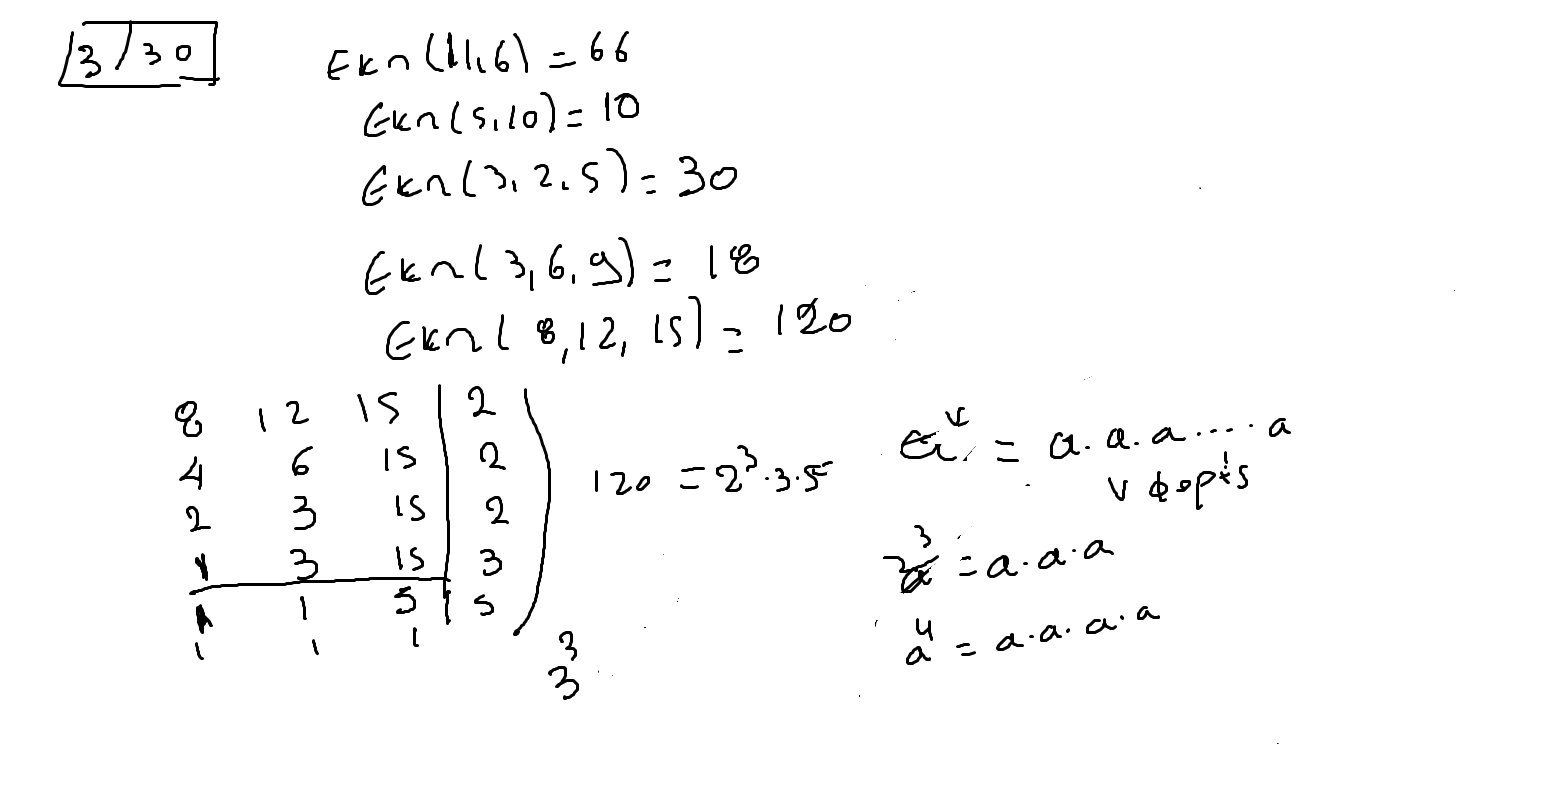 3/30
Εκπ(11,6) = 66
Εκπ(5,10) = 10
Εκπ(3,2,5) = 30
Εκπ(3,6,9) = 18
Εκπ(8,12,15) = 120
8 12 15 | 2
4 6 15 | 2
2 3 15 | 2
1 3 15 | 3
1 1 5 | 5
1 1 1
120 = 2³·3·5
3³
αᵛ = α·α·α·....·α
ν φορές
α³ = α·α·α
α⁴ = α·α·α·α